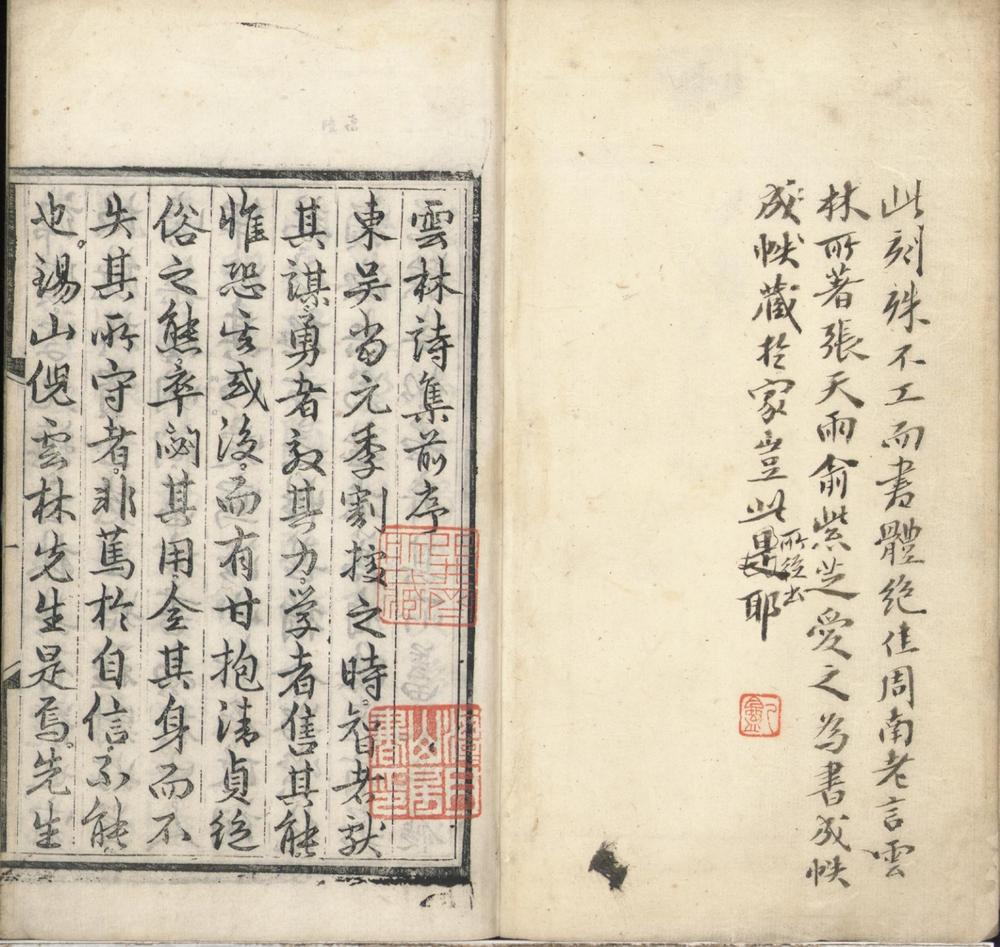 此刻殊不工而書體絕佳周南老言雲
林所著張天雨俞紫芝愛之為書成帙
成帙藏於家豈此
所從出
耶
雲林詩集前序
東吴當元季割據之時智者獻
其謀勇者效其力学者售其能
惟恐后或後而有甘抱清貞絕
俗之態率閟其用全其身而不
失其所守者非篤於自信不能
也錫山倪雲林先生是焉先生